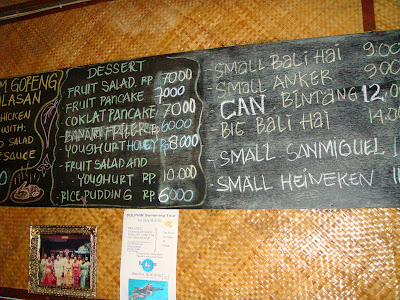 M GORENG
ALASAN
CHICKEN
WITH:
D SALAD
SAUCE
DESSERT
FRUIT SALAD. RP 7000
FRUIT PANCAKE 7000
COKLAT PANCAKE 7000
6000
YOUGHURT HONEY 8.000
FRUIT SALAD AND
YOUGHURT RP 10.000
RICE PUDDING RP 6000
SMALL BALI HAI 9.00
SMALL ANKER 9.00
CAN BINTANG 12.0
BIG BALI HAI 14.00
SMALL SANMIGUEL 1
SMALL HEINEKEN